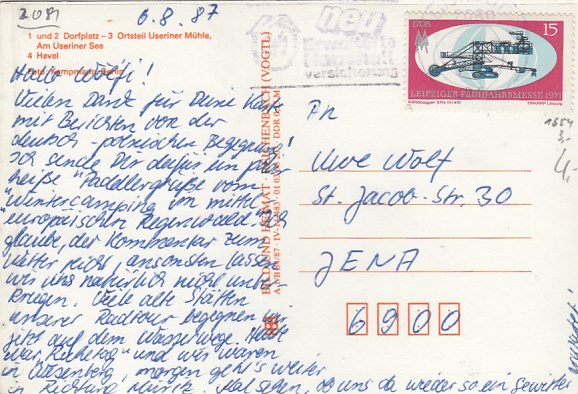 2081
6.8.87
1 und 2 Dorfplatz – 3 Ortsteil Useriner Mühle,
Am Useriner See
4 Havel
Foto: Kampmann, Berlin
Hallo Wolfi!
Vielen Dank für Deine Karte
mit Berichten von der
deutsch-polnischen Begegnung!
Ich sende Dir dafür ein paar
heiße "Paddlergrüße vom
"Wintercamping im mittel
europäischen Regenwald. Ich
glaube, der Kommentar zum
Wetter reicht, ansonsten lassen
wir uns natürlich nicht unter
kriegen. Viele alte Stätten
unserer Radtour begegnen wir
jetzt auf dem Wasserwege. Heute
war "Ruhetag" und wir waren
in Wesenberg, morgen geht's weiter
in Richtung Müritz. Mal sehen, ob uns da wieder so ein Gewitter
BILD UND HEIMAT REICHENBACH (VOGTL)
neu
versicherung
DDR
15
LEIPZIGER FRÜHJAHRSMESSE 1971
An
Uwe Wolf
St. Jacob-Str. 30
JENA
6900
1654
3,-
4,-